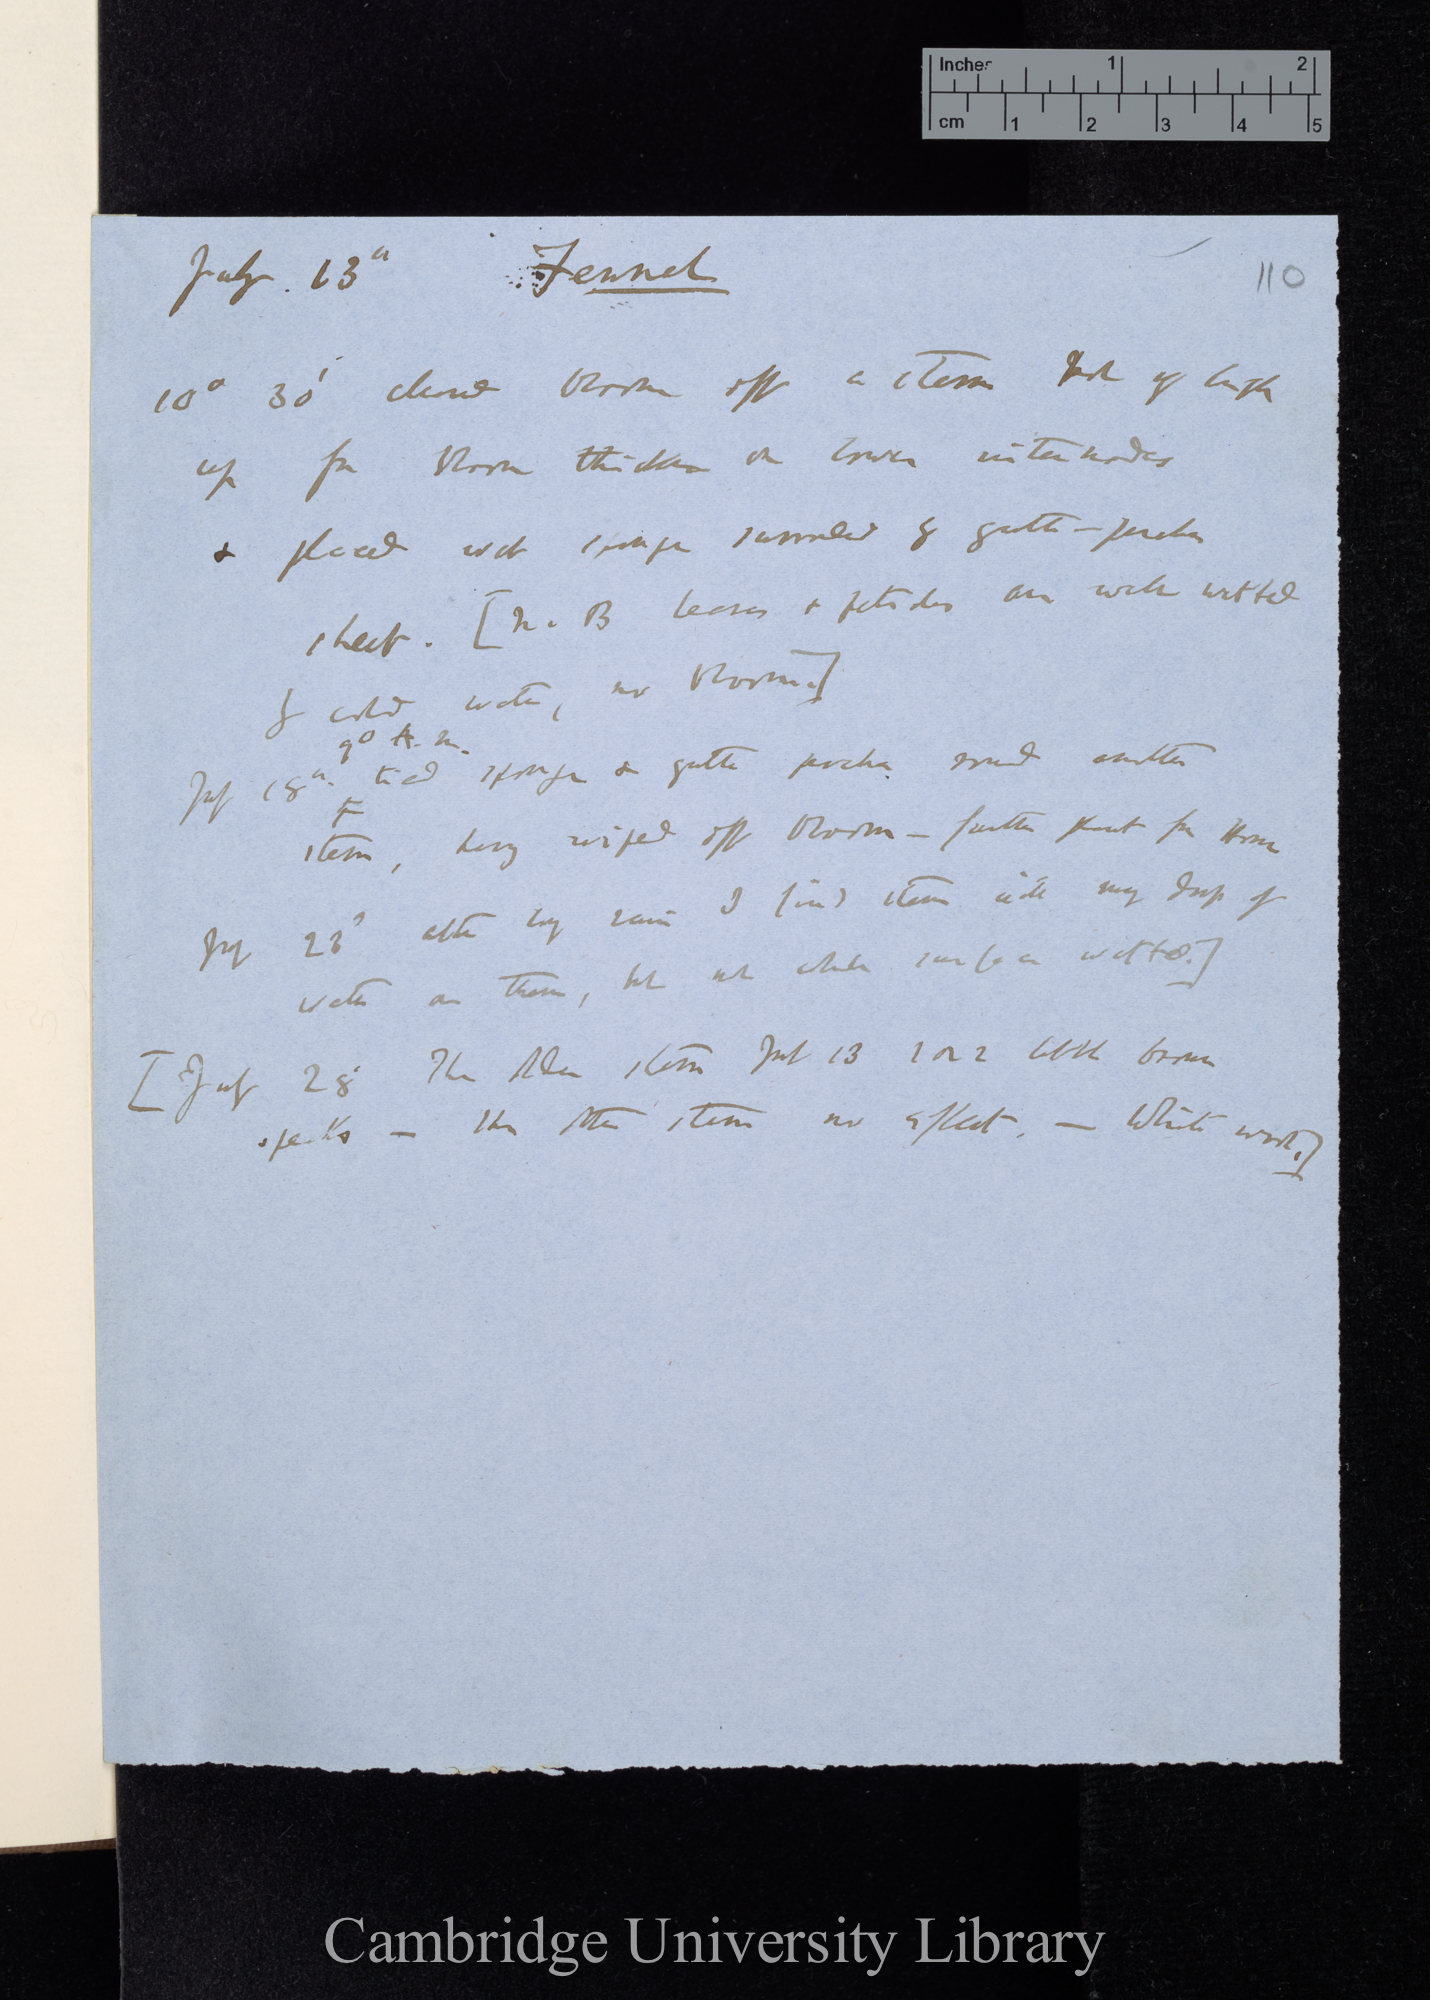 Inches 1 2
cm 1 2 3 4 5
110
July. 13th Fennel
10° 30' cleaned bloom off a stem
up for bloom thicker on lower internodes
& placed wet sponge surrounded by gutta-percha
sheet. [N.B leaves & petioles are well wetted
by cold water, no bloom.]
9° A.m.
July 18th. tied sponge & gutta percha round another
stem, having wiped off bloom — further
July 23d after rain I find stems with many drops of
water on them, but not whole surface wetted.]
[July 28 The stem July 13 1 or 2 little brown
specks — the other stem no effect. — White wool.]
Cambridge University Library